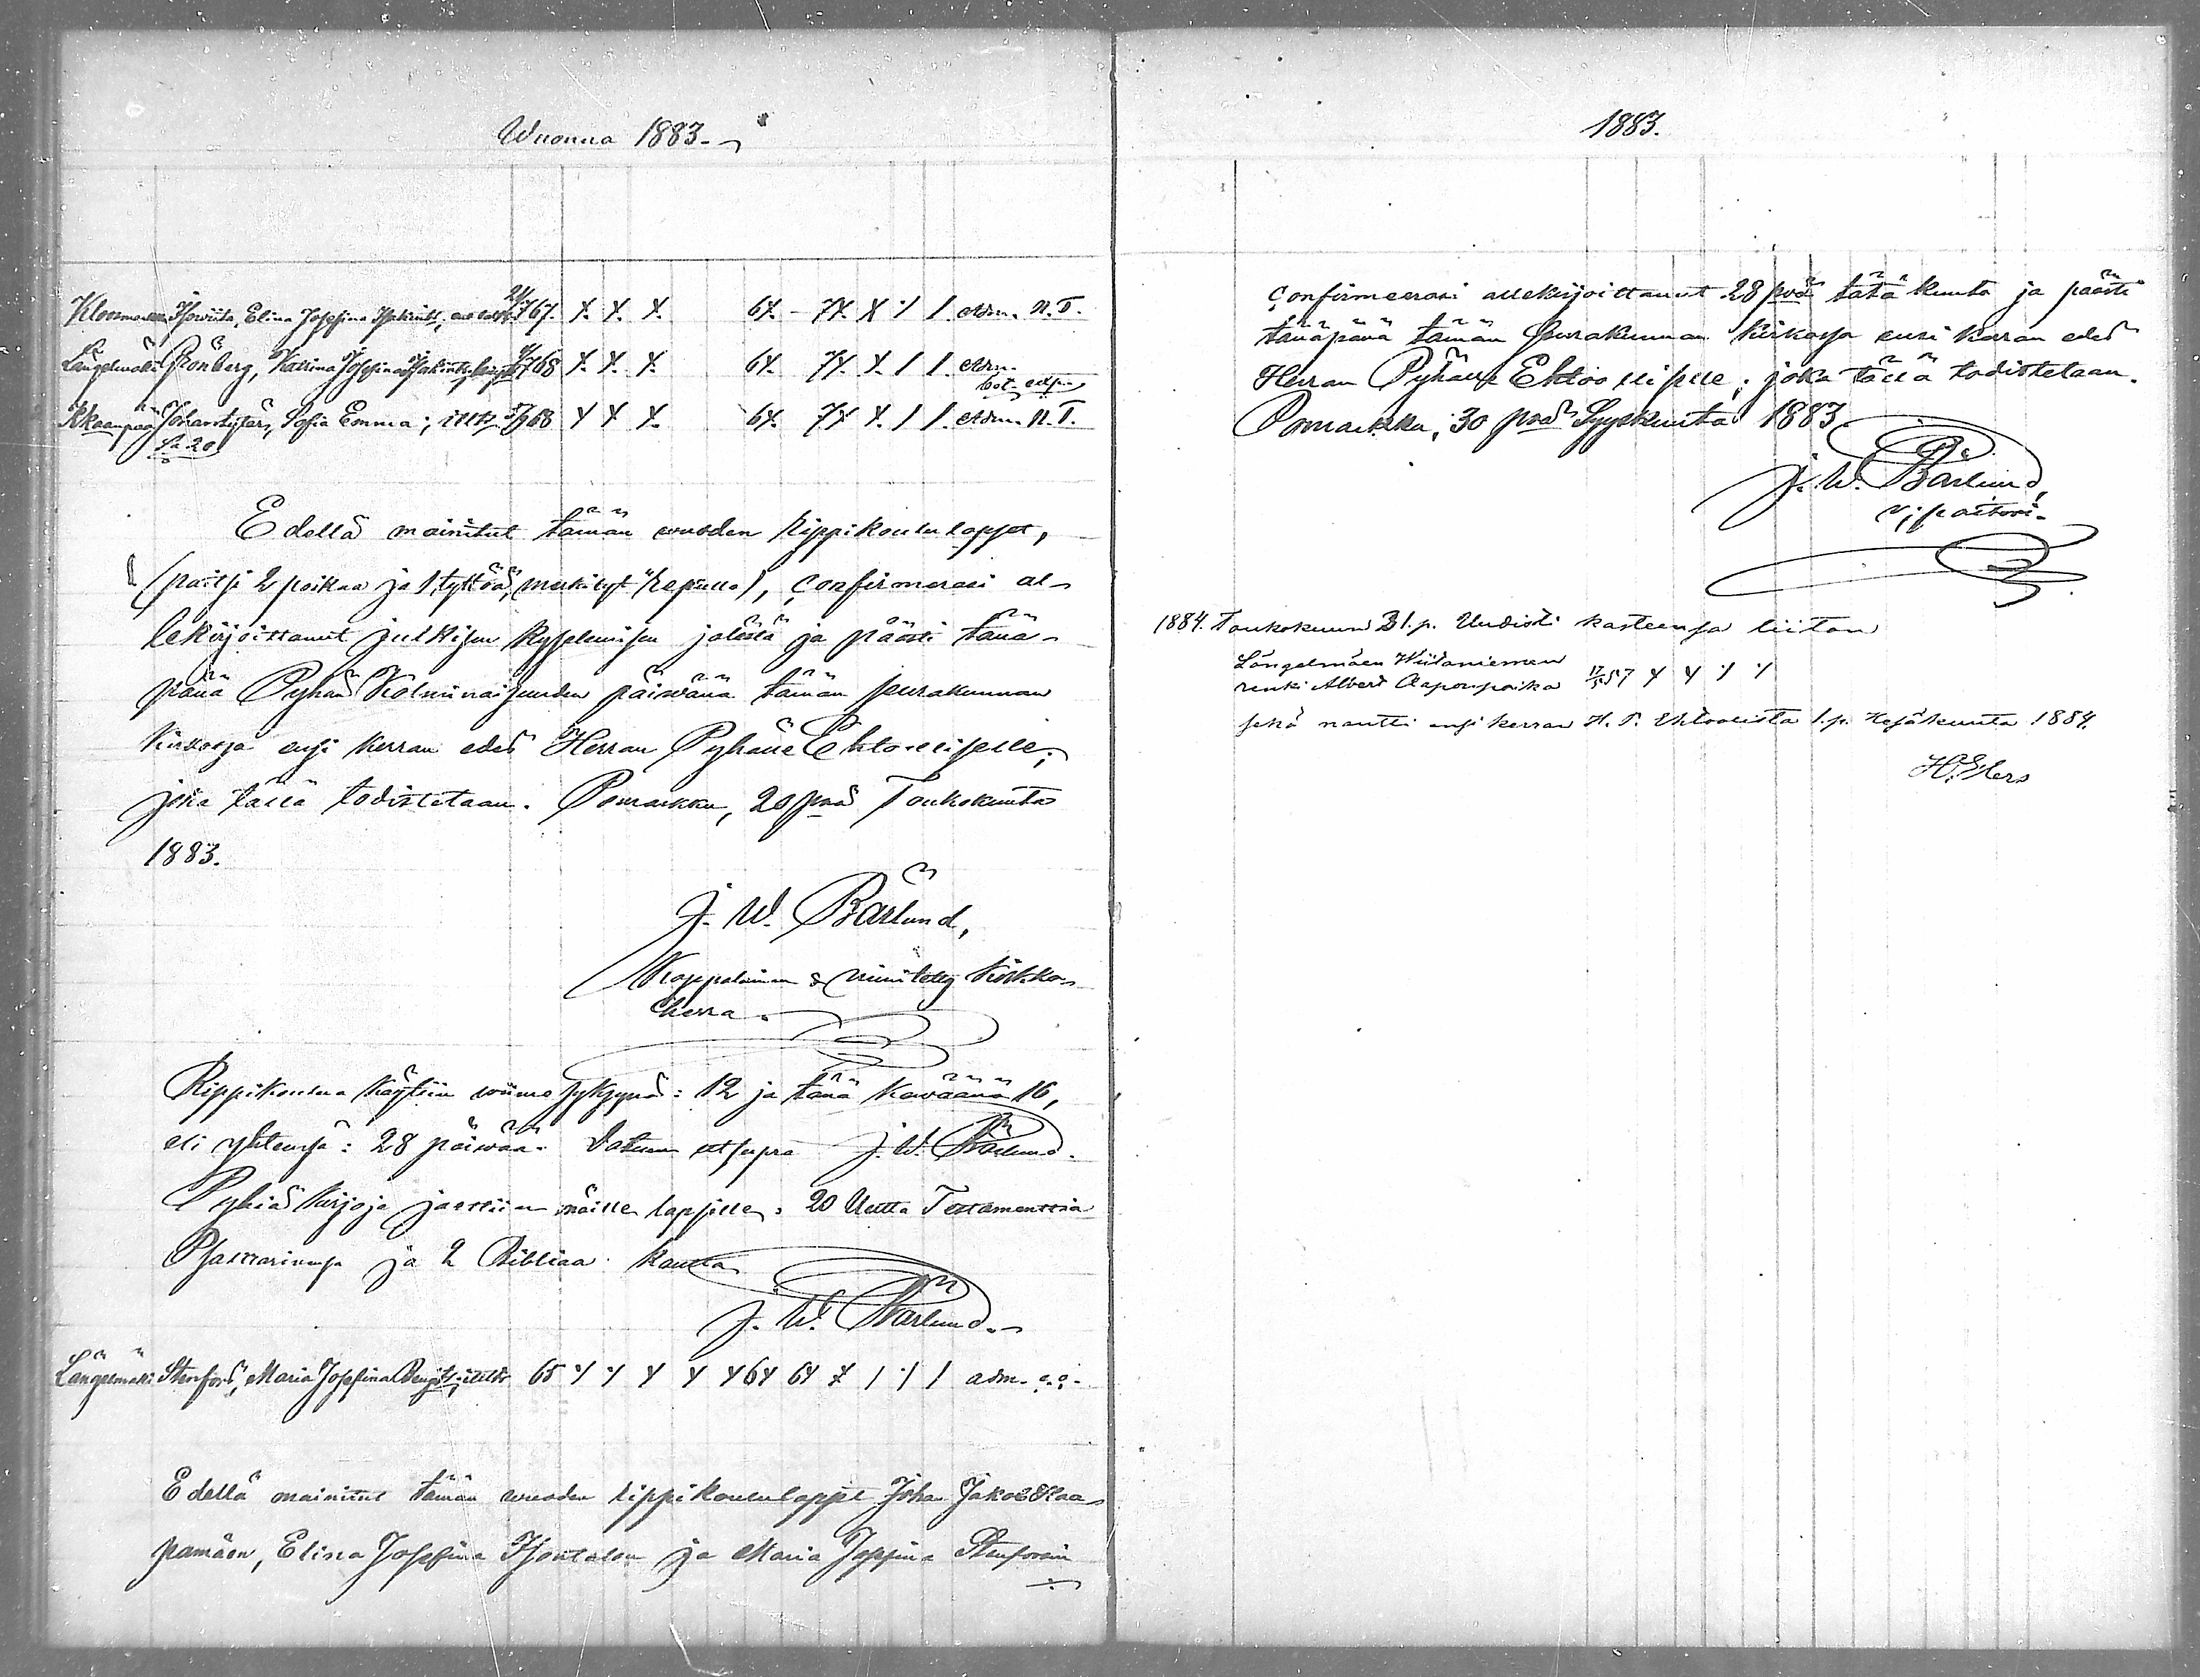 Wuonna 1883.
Elina Josefina 67. X. X. X. 6X. - 7X. X 1 1. adm. N. T.
Längelmäki Grönberg, Katrina Josefina 68 X. X. X. 6X. 7X. X. 1 1. adm.
Johantytär, Sofia Emma; 68 X X X. 6X. 7X X. 1 1. adm. N. T.
Edellä mainitut tämän wuoden rippikoululapset,
(paitsi 2 poikaa ja 1 tyttöä, merkityt), confirmerasi al-
lekirjoittanut julkisen kyselemisen jälestä ja päästi tänä-
pänä Pyhän Kolminaisuuden päiwänä tämän seurakunnan
kirkossa ensi kerran edes Herran Pyhälle Ehtoolliselle;
joka tässä todistetaan. Pomarkku, 20 pnä Toukokuuta
1883.
J. W. Bärlund,
Kappalainen & nimitetty Kirkko-
herra.
Rippikoulua käytiin wiime syksynä: 12 ja tänä kewäänä 16,
eli yhteensä: 28 päiwää. Datum ut supra J. W. Bärlund.
Pyhiä kirjoja jaettiin näille lapsille: 20 Uutta Testamenttia
Psaltarinensa ja 2 Bibliaa kautta
J. W. Bärlund.
Längelmäki Stenfors, Maria Josefina 65 X X X X X 6X 6X X 1 1 1 adm.
Edellä mainitut tämän wuoden rippikoululapset Johan Jakob Haa-
pamäen, Elina Josefina ja Maria Josefina Stenforsin
1883.
confirmeerasi allekirjoittanut 28 pnä tätä kuuta ja päästi
tänäpänä tämän seurakunnan kirkossa ensi kerran edes
Herran Pyhälle Ehtoolliselle; joka tässä todistetaan.
Pomarkku, 30 pnä Syyskuuta 1883
J. W. Bärlund,
v. pastori.
1884. Toukokuun 31. p. Uudisti kasteensa liiton
Längelmäen Wiidaniemen
renki Albert Aaponpoika 17/5 57 X X 1 1
sekä nautti ensi kerran H. P. Ehtoollista 1. p. Kesäkuuta 1884.